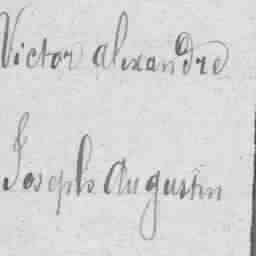 Victor Alexandre
Joseph Augustin